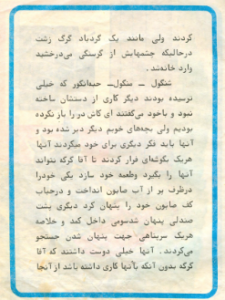 کردند ولی مانند یک گردباد گرگ زشت
درحالیکه چشمهایش از گرسنگی می‌درخشید
وارد خانه‌شد.
شنگول ـ منگول ـ حبه‌انگور که خیلی
ترسیده بودند دیگر کاری از دستشان ساخته
نبود و باخود می‌گفتند ای کاش در را باز نکرده
بودیم ولی بچه‌های خوبم دیگر دیر شده بود و
آنها باید فکر دیگری برای خود میکردند آنها
هریک بگوشه‌ای فرار کردند تا آقا گرگه نتواند
آنها را بگیرد وطعمه خود سازد یکی خودرا
درظرف پر از آب صابون انداخت و درحباب
کف صابون خود را پنهان کرد دیگری پشت
صندلی پنهان شد سومی داخل کمد و خلاصه
هریک سرپناهی جهت پنهان شدن جستجو
می‌کردند. آنها خیلی دوست داشتند که آقا
گرگه بدون آنکه باآنها کاری داشته باشد از آنجا